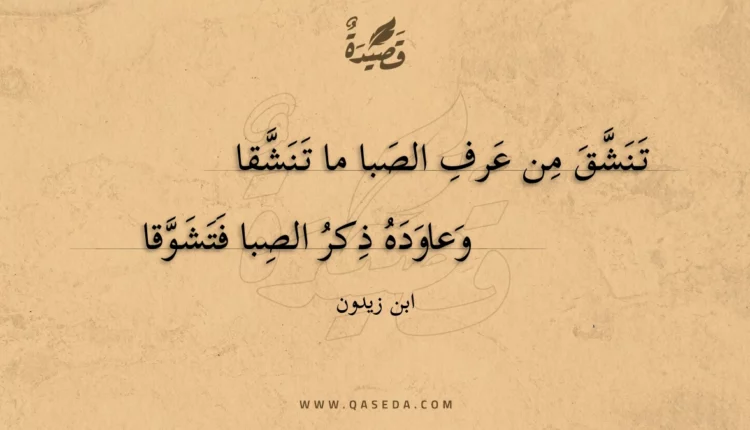 قَصِيْدَةٌ
تَنَشَّقَ مِن عَرفِ الصَبا ما تَنَشَّقا
وَعاوَدَهُ ذِكرُ الصِبا فَتَشَوَّقا
ابن زيدون
WWW.QASEDA.COM